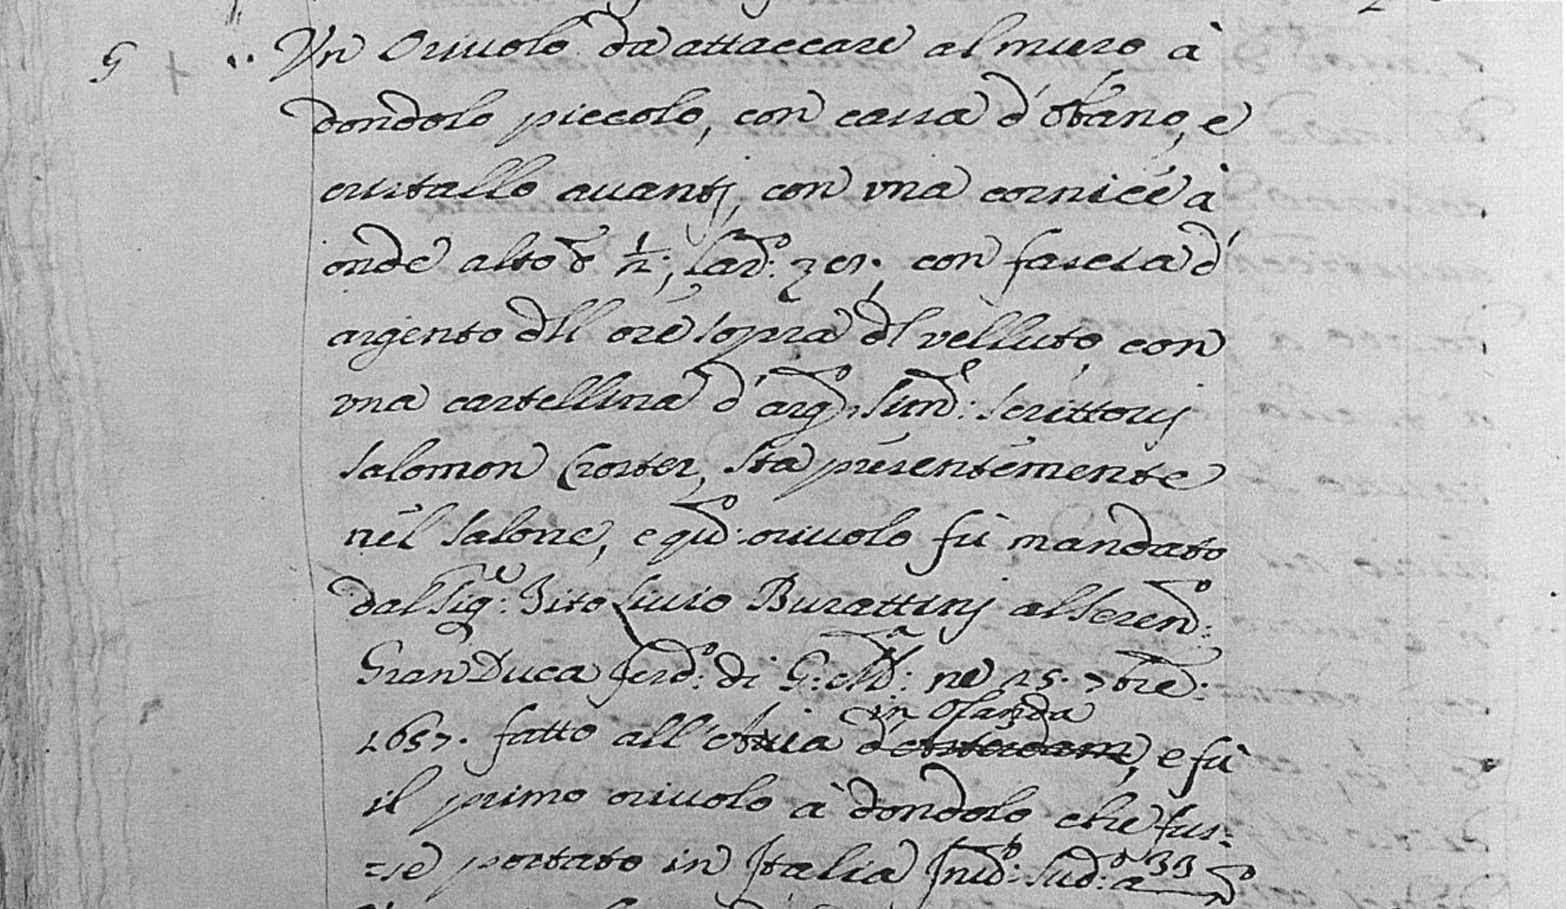 9 + Vn Oriuolo da attaccare al muro à
dondolo piccolo, con cassa d'ebano, e
cristallo auantj, con vna cornice à
onde alto ½, lar.º con fascia d'
argento dll ore sopra dl velluto, con
vna cartellina d'arg.º Scrittouj
Salomon Coster, sta presentemente
nel salone, e q.do oriuolo fù mandato
dal Sig.r Tito Liuio Burattinj al Seren.º
Gran Duca Ferd.º di G: M.a: ne 25. 7bre:
1657. fatto all'Aiia in Olanda, e fù
il primo oriuolo à dondolo che fus=
=se portato in Italia Ind.º Sud.º a 33